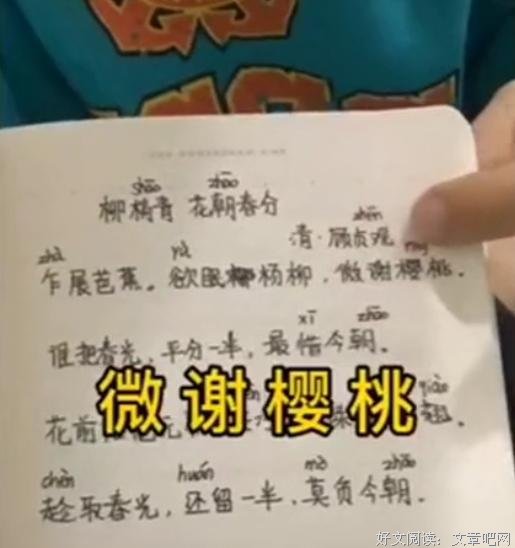 shāo zhāo
柳梢青 花朝春分
zhēn
清·顾贞观
zhà
乍展芭蕉。欲眠杨柳,微谢樱桃。
xī zhāo
谁把春光,平分一半,最惜今朝。
微谢樱桃
qiào
花前 翘。
chèn huán mò zhāo
趁取春光,还留一半,莫负今朝。
好文阅读:文章吧网